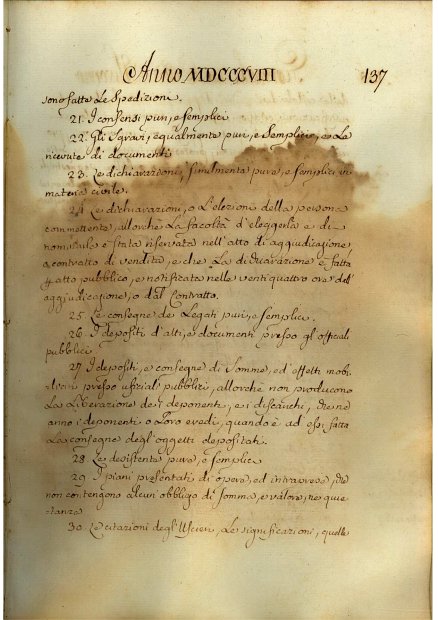 Anno MDCCCVIII 137
sono fatta Le Spedizioni.
21. I consensi puri, e semplici
22. Gli Sgravi, egualmente puri, e Semplici, e Le
ricevute di documenti
23. Le dichiarazioni, similmente pure, e semplici in
materia civile.
24 Le dichiarazioni, o L'elezioni della persona
committente, allorche La facoltà d'eleggerla e di
nominarla è stata riservata nell'atto di aggiudicazione,
o contratto di vendita, e che La dichiarazione è fatta
atto pubblico, e notificata nelle ventiquattro ore dell'
aggiudicazione, o dal Contratto.
25 Le consegne de Legati puri, e semplici.
26. I depositi d'atti, e documenti presso gl'officiali
pubblici
27 I depositi, e consegne di Somme, ed effetti mobi
presso pubblici, allorchè non producono
La Liberazione de' deponenti, e i discarichi, che ne
anno i deponenti o Loro eredi, quando è ad essi fatta
La consegna degl'oggetti depositati.
28 Le desistenze pure, e semplici
29 I piani presentati di opere, ed intraprese, che
non contengono alcun obbligo di somma, e valore, ne quie
tanza
30. Le citazioni degl'Uscieri, Le significazioni, quelle